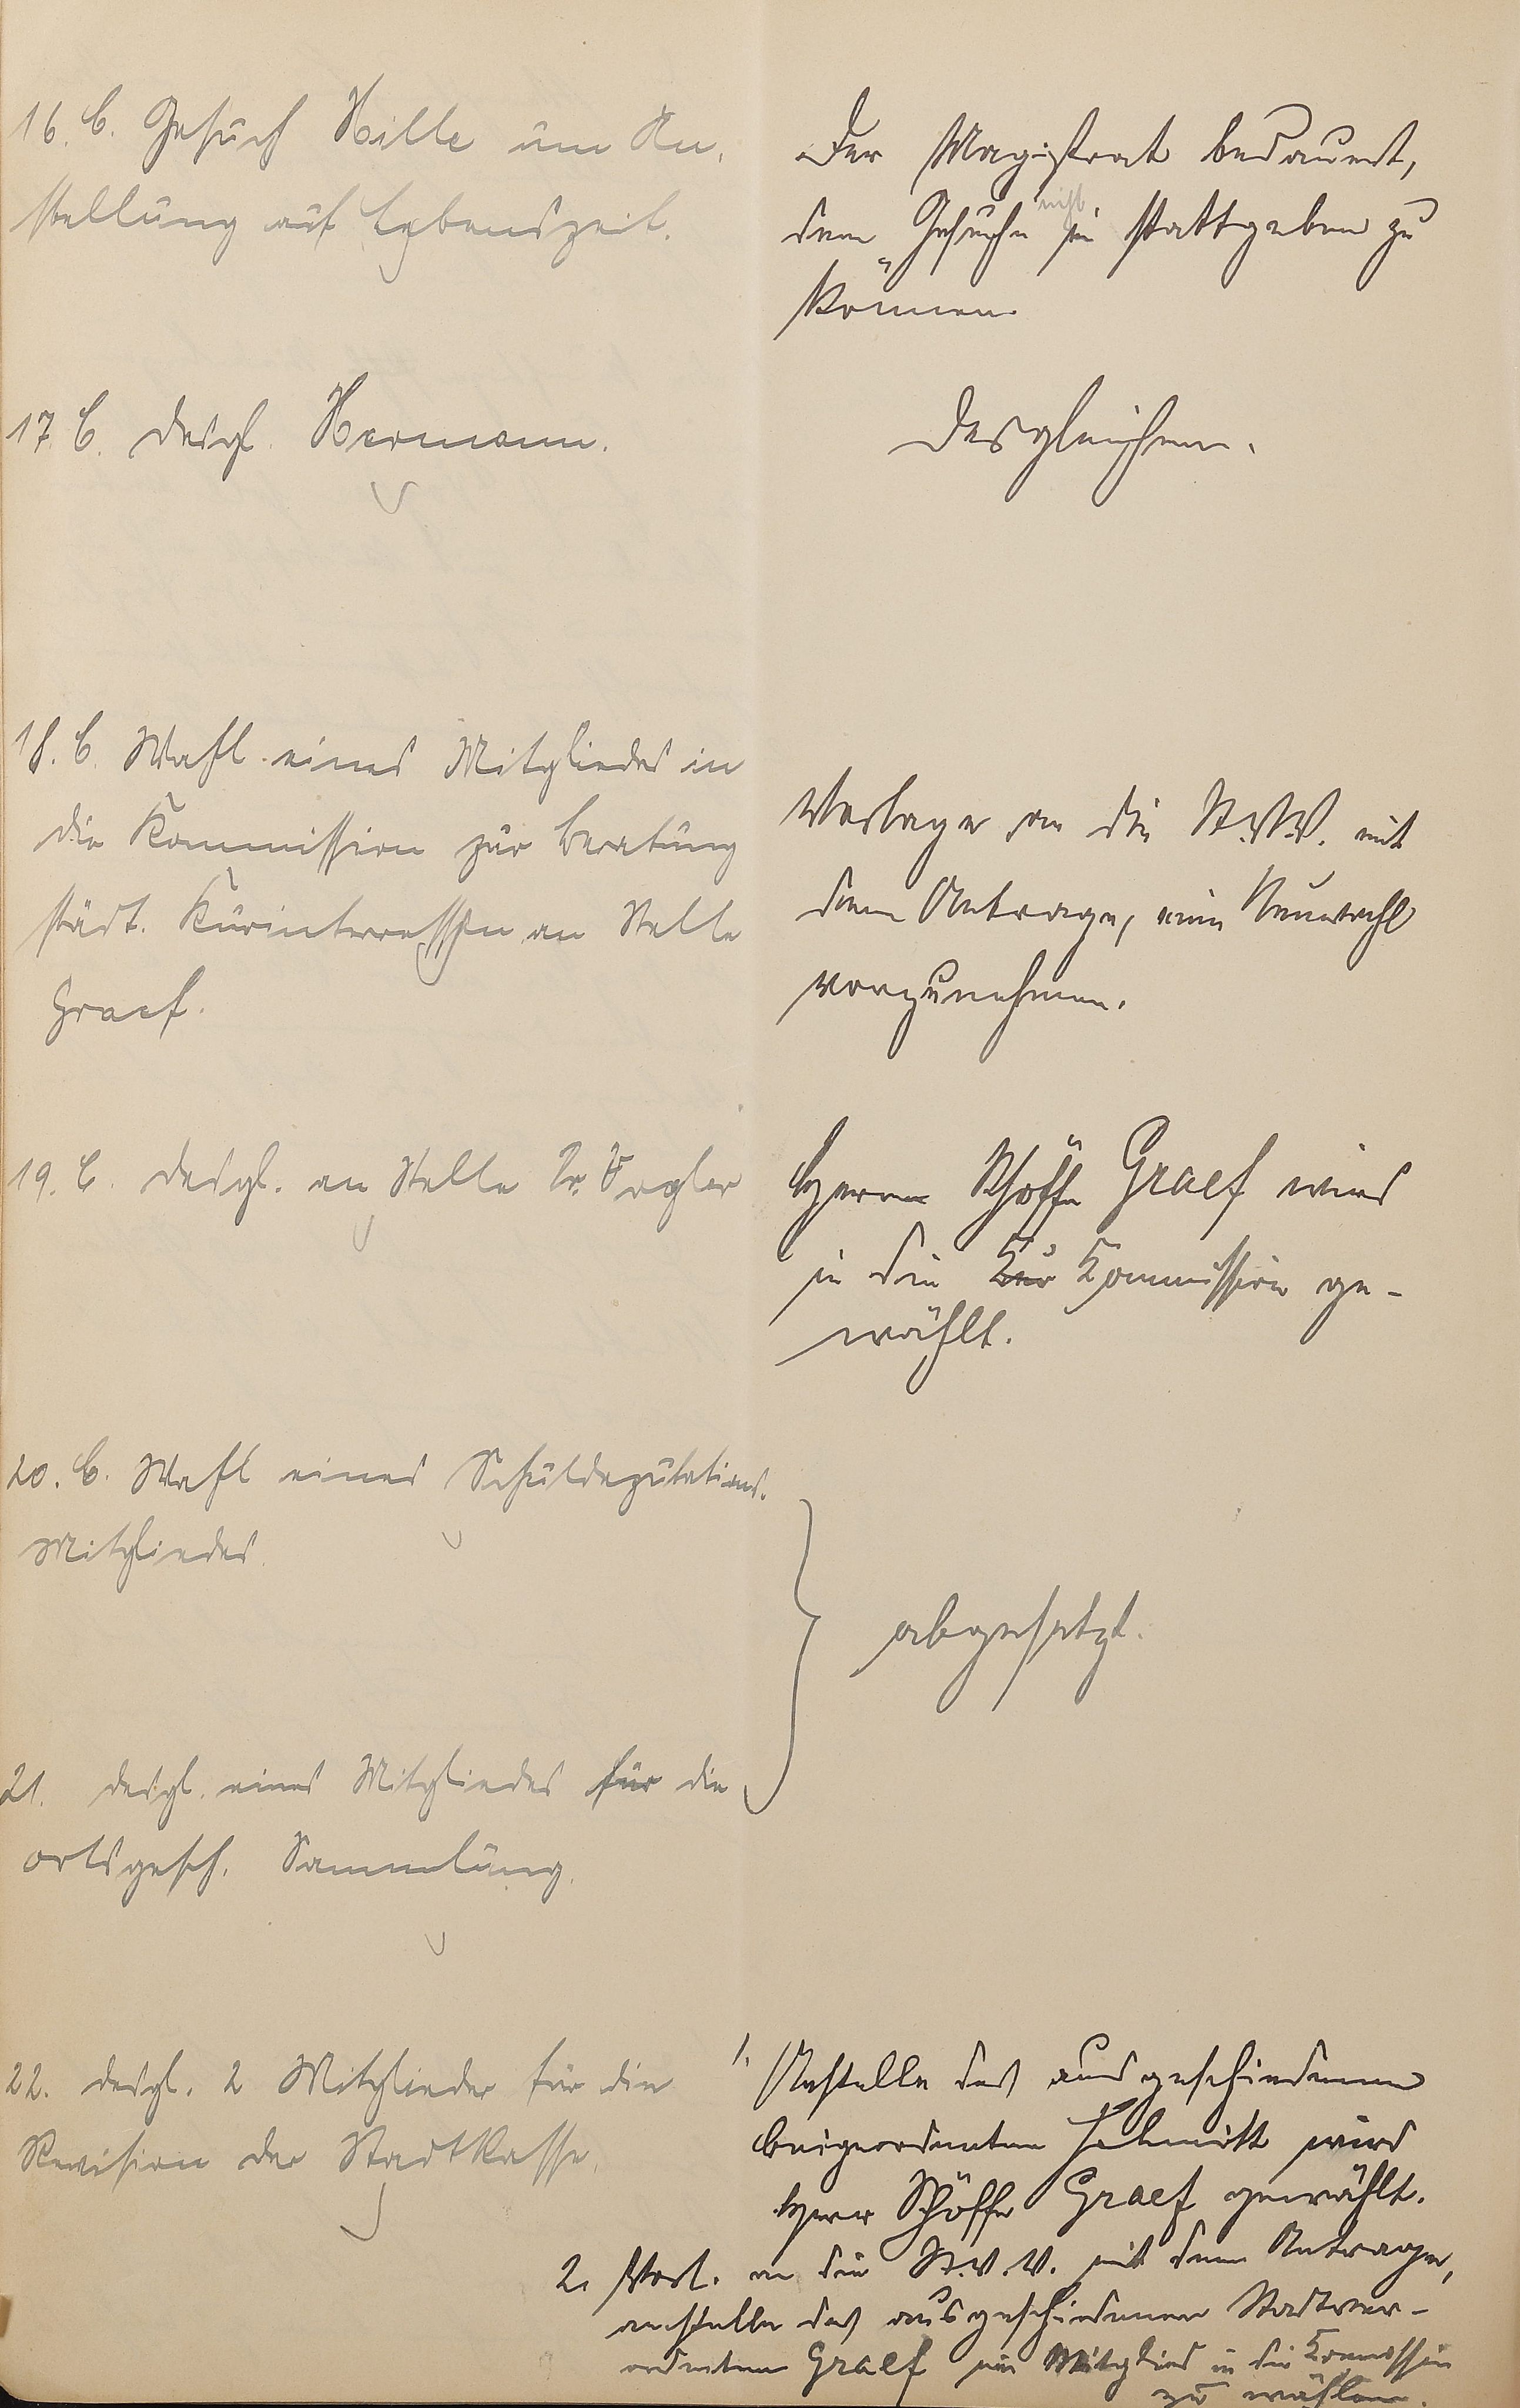 16. C. Gesuch Hille um An-
stellung auf Lebenszeit.
Der Magistrat bedauert,
dem Gesuche nicht stattgeben zu
können.
17. C. desgl. Hermann.
Desgleichen.
18. C. Wahl eines Mitgliedes in
die Kommission zur Beratung
städt. Kurinteressen an Stelle
Graef.
Vorlage an die St.V.V. mit
dem Antrage, eine Neuwahl
vorzunehmen.
19. C. desgl. an Stelle Dr. Vogler
Herrn Schöffe Graef wird
in die Kur Kommission ge-
wählt.
20. C. Wahl eines Schuldeputations-
Mitgliedes.
21. desgl. eines Mitgliedes für die
ortsgesch. Sammlung.
abgesetzt.
22. desgl. 2 Mitglieder für die
Revision der Stadtkasse.
1. Anstelle des ausgeschiedenen
Beigeordneten Schmitt wird
Herr Schöffe Graef gewählt.
2. Vorl. an die St.V.V. mit dem Antrage,
anstelle des ausgeschiedenen Stadtver-
ordneten Graef ein Mitglied in die Kommission
zu wählen.